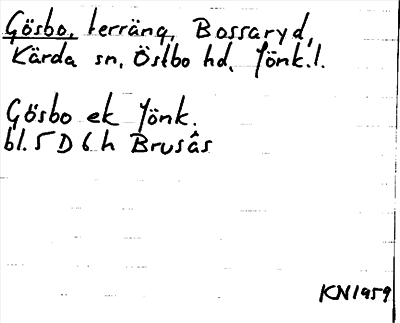 Gösbo, terräng, Bossaryd,
Kärda sn, Östbo hd, Jönk.l.
Gösbo ek Jönk.
bl. 5 D 6 h Brusås
KN1959